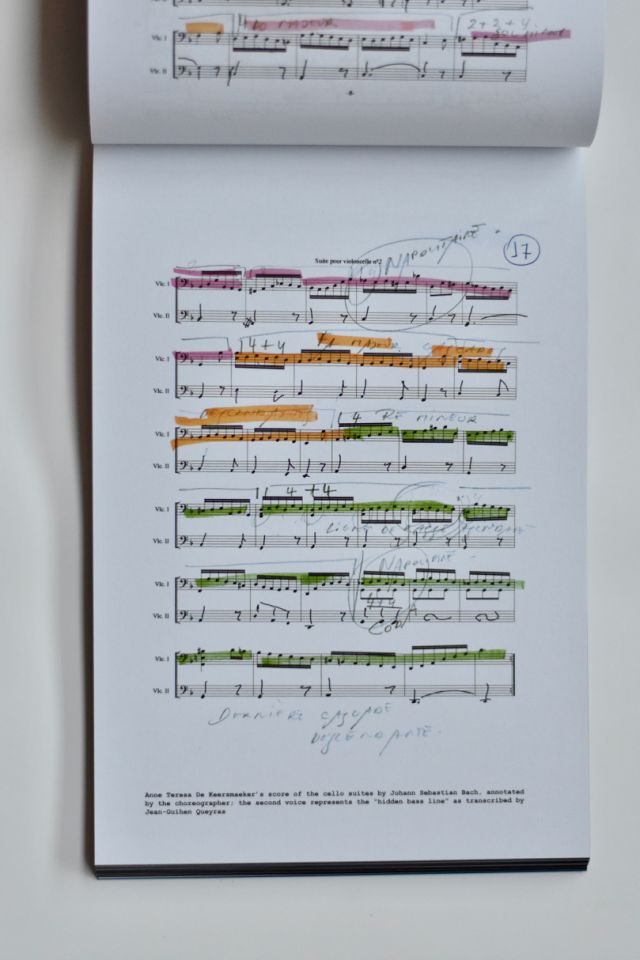 4 DO MAJEUR
2+2+4
Vlc. I
Vlc. II
Suite pour violoncelle n°2
NAPOLITAINE
17
Vlc. I
Vlc. II
4+4
MAJEUR
Vlc. I
Vlc. II
DESCENDANTES
4 RÉ MINEUR
Vlc. I
Vlc. II
4 +4
Vlc. I
LIGNE DE BASSE
Vlc. II
NAPOLITAINE
Vlc. I
4+4
Vlc. II
CODA
Vlc. I
Vlc. II
DERNIÈRE CASCADE
DESCENDANTE.
Anne Teresa De Keersmaeker's score of the cello suites by Johann Sebastian Bach, annotated
by the choreographer; the second voice represents the "hidden bass line" as transcribed by
Jean-Guihen Queyras